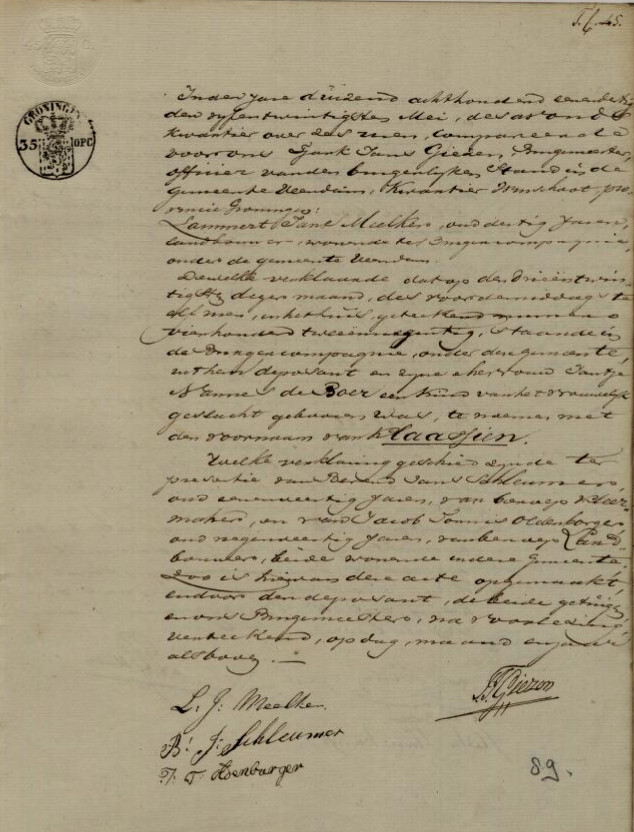 F. 6. 45.
GRONINGEN
35 10PC
In den jare duizend achthonderd eenendertig
den vyfentwintigsten Mei, des avonds
kwartier over zes uren, compareerde
voor ons Tjark Jans Giezen, Burgemeester,
officier van den burgerlyken Stand in de
gemeente Veendam, Kwartier Winschoten pro-
vincie Groningen:
Lammert Jans Meelker, oud dertig jaren,
landbouwer, wonende te
onder de gemeente Veendam.
Dewelke verklaarde dat op den drieëntwin-
tigsten dezer maand, des voordemiddags te
elf uren, in het huis, geteekend nummer
vierhonderd tweeënnegentig, staande in
de compagnie, onder deze gemeente,
uit hem deposant en zyne ehevrouw Jantje
Nannes de Boer een kind van het vrouwelyk
geslacht geboren was, te noemen met
den voornaam van Klaassien.
Welke verklaring geschied zynde ter
presentie van Berend Jans Schleumer,
oud eenenveertig jaren, van beroep
makers, en van Jacob Tonnis Oldenborger
oud negenveertig jaren, van beroep Land-
bouwers, beide wonende in deze Gemeente,
zoo is hiervan deze acte opgemaakt,
en door den deposant, de beide getuigen
en ons Burgemeester, na voorlezing
verteekend, op dag, maand en jaar
als boven.
L. J. Meelker
T J Giezen
B. J. Schleumer
J. T.
89.